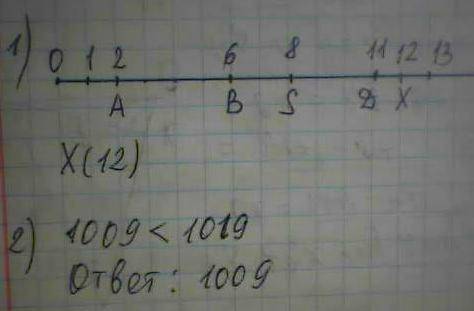 1)
0 1 2 6 8 11 12 13
A B S D X
X(12)
2) 1009 < 1019
Ответ: 1009